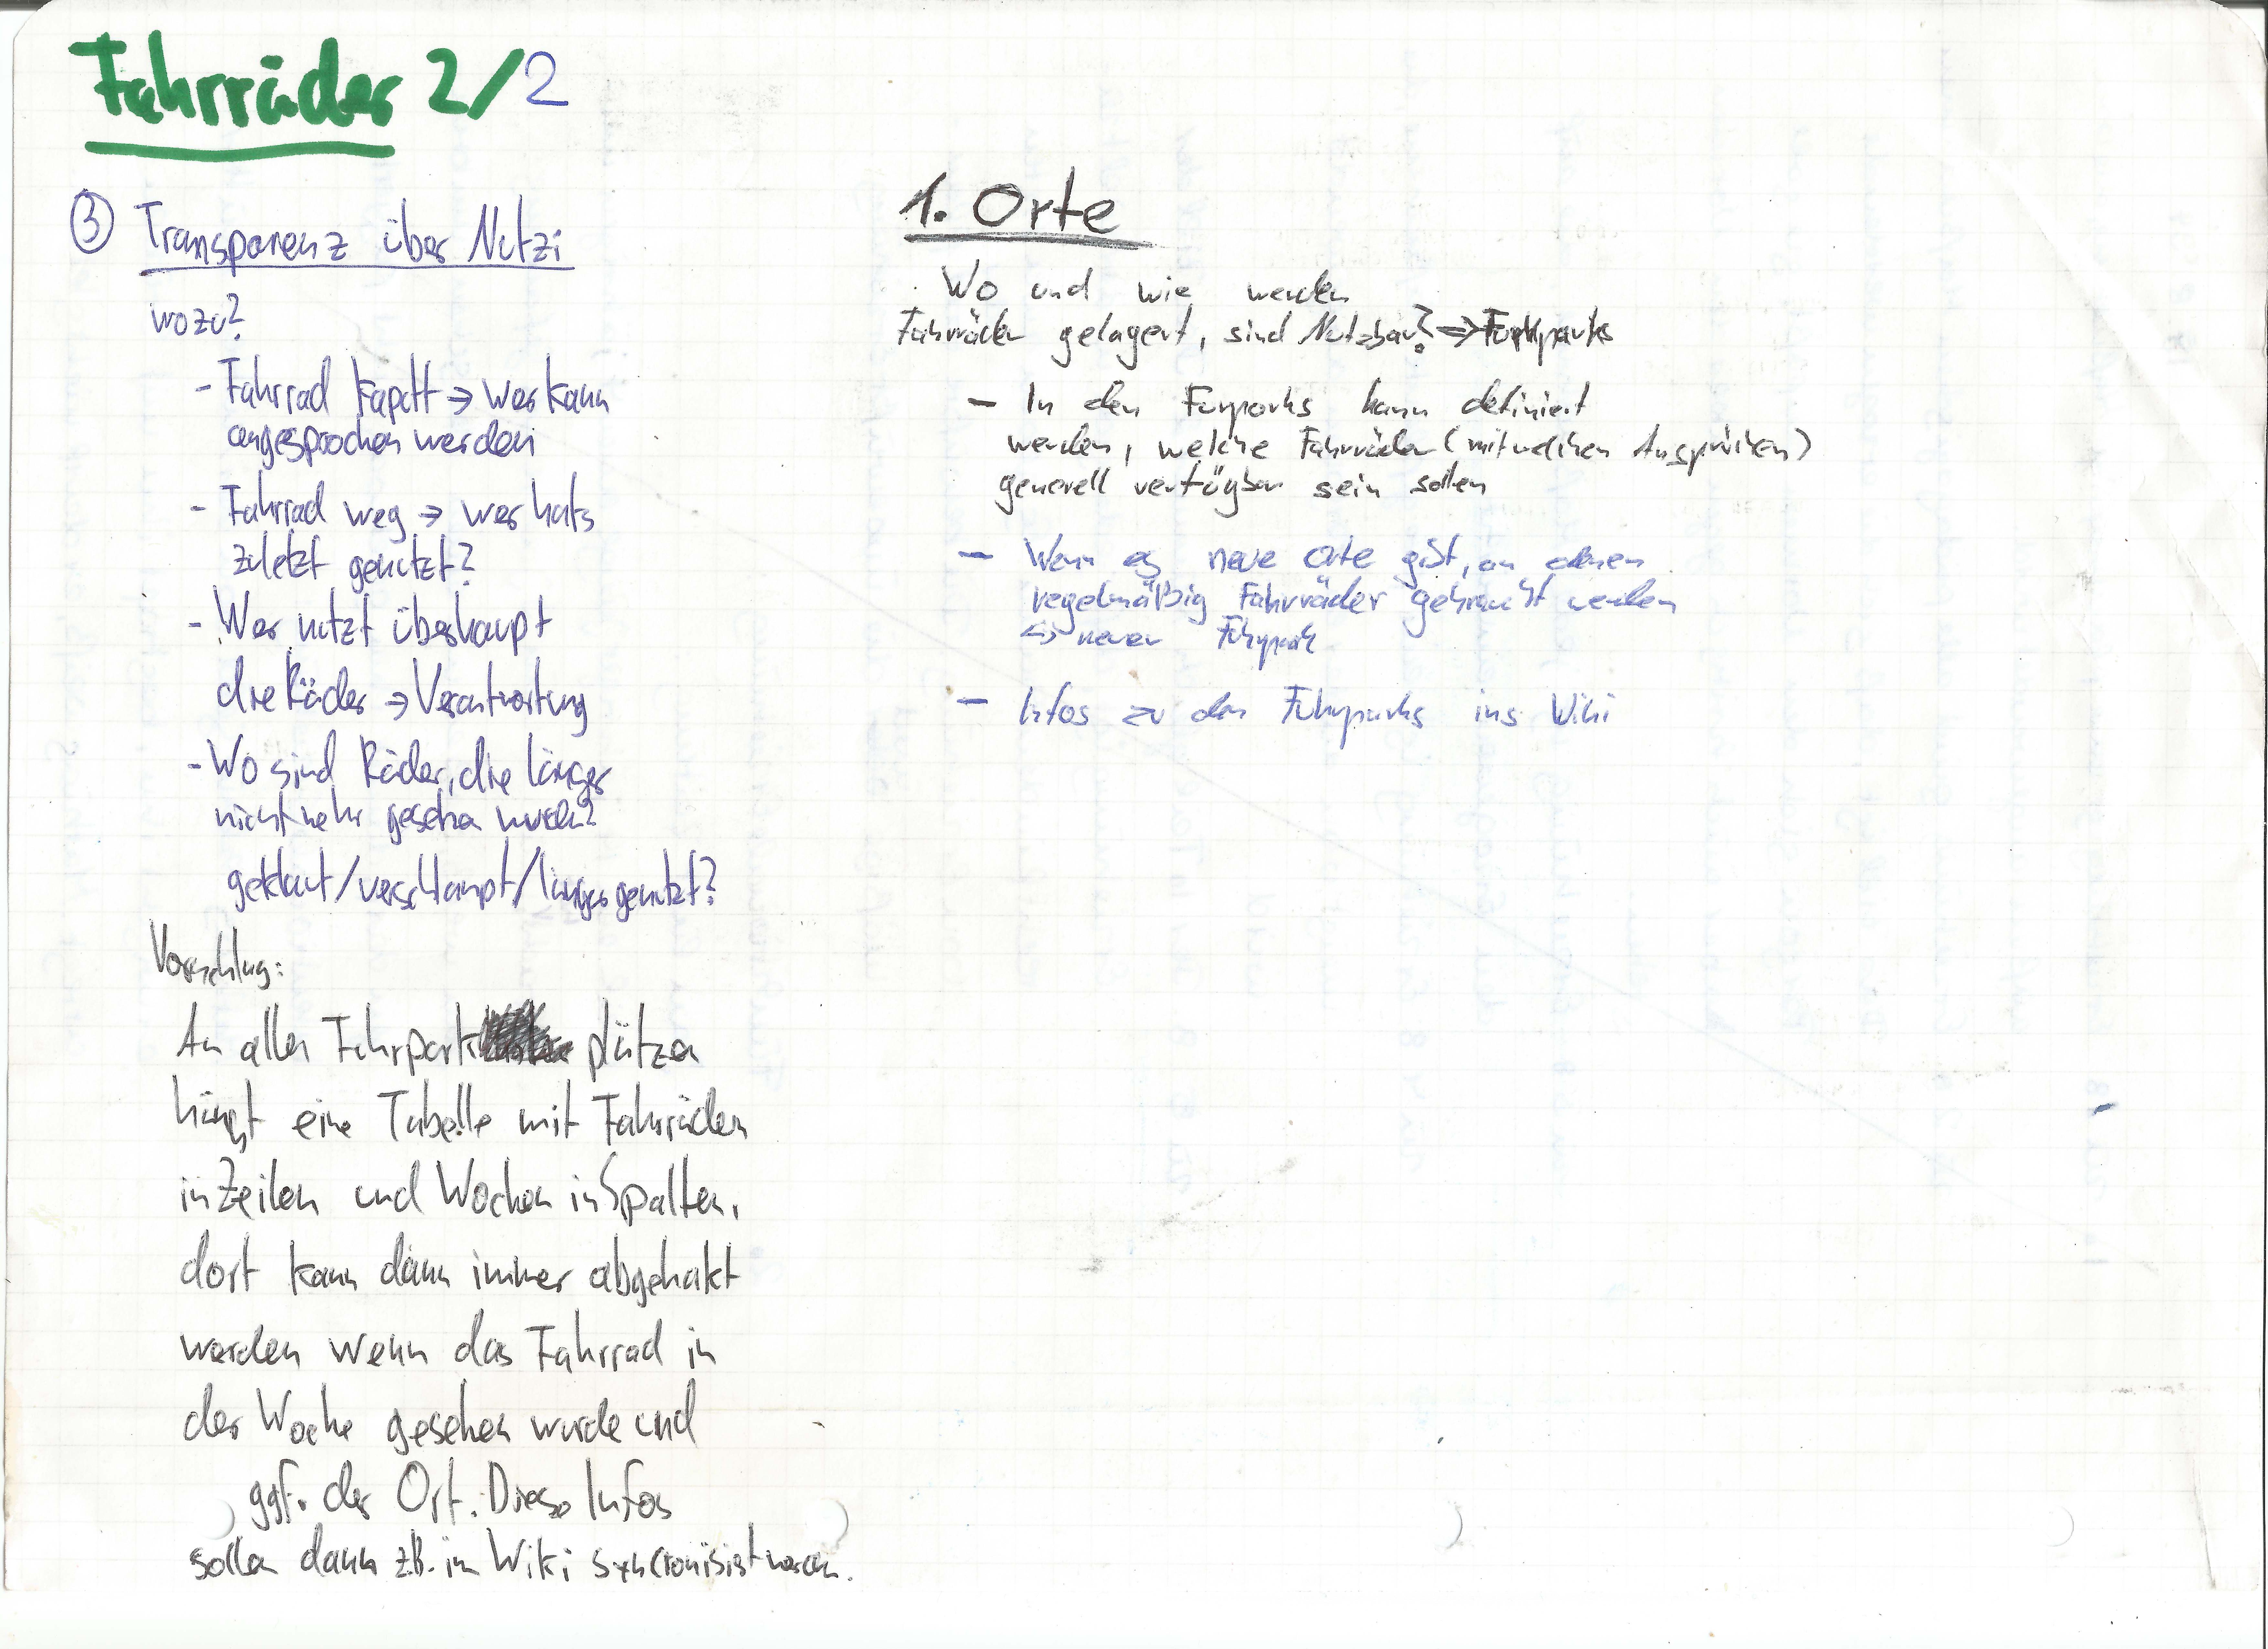 Fahrräder 2/2
③ Transparenz über Nutzi
wozu?
- Fahrrad kaputt → wer kann
angesprochen werden
- Fahrrad weg → wer hats
zuletzt genutzt?
- Wer nutzt überhaupt
die Räder → Verantwortung
- Wo sind Räder, die länger
nicht mehr gesehen wurden?
geklaut/verschlampt/länger genutzt?
Vorschlag:
An allen Fuhrpark plätzen
hängt eine Tabelle mit Fahrrädern
in Zeilen und Wochen in Spalten,
dort kann dann immer abgehakt
werden wenn das Fahrrad in
der Woche gesehen wurde und
ggf. der Ort. Diese Infos
sollen dann z.B. im Wiki syncronisiert werden.
1. Orte
Wo und wie werden
Fahrräder gelagert, sind Nutzbar? ⇒
- In den kann definiert
werden, welche Fahrräder (mit welchen Ansprüchen)
generell verfügbar sein sollen
- Wenn es neue Orte gibt, an denen
regelmäßig Fahrräder gebraucht werden
↪ neuer Fuhrpark
- Infos zu den Fuhrparks ins Wiki